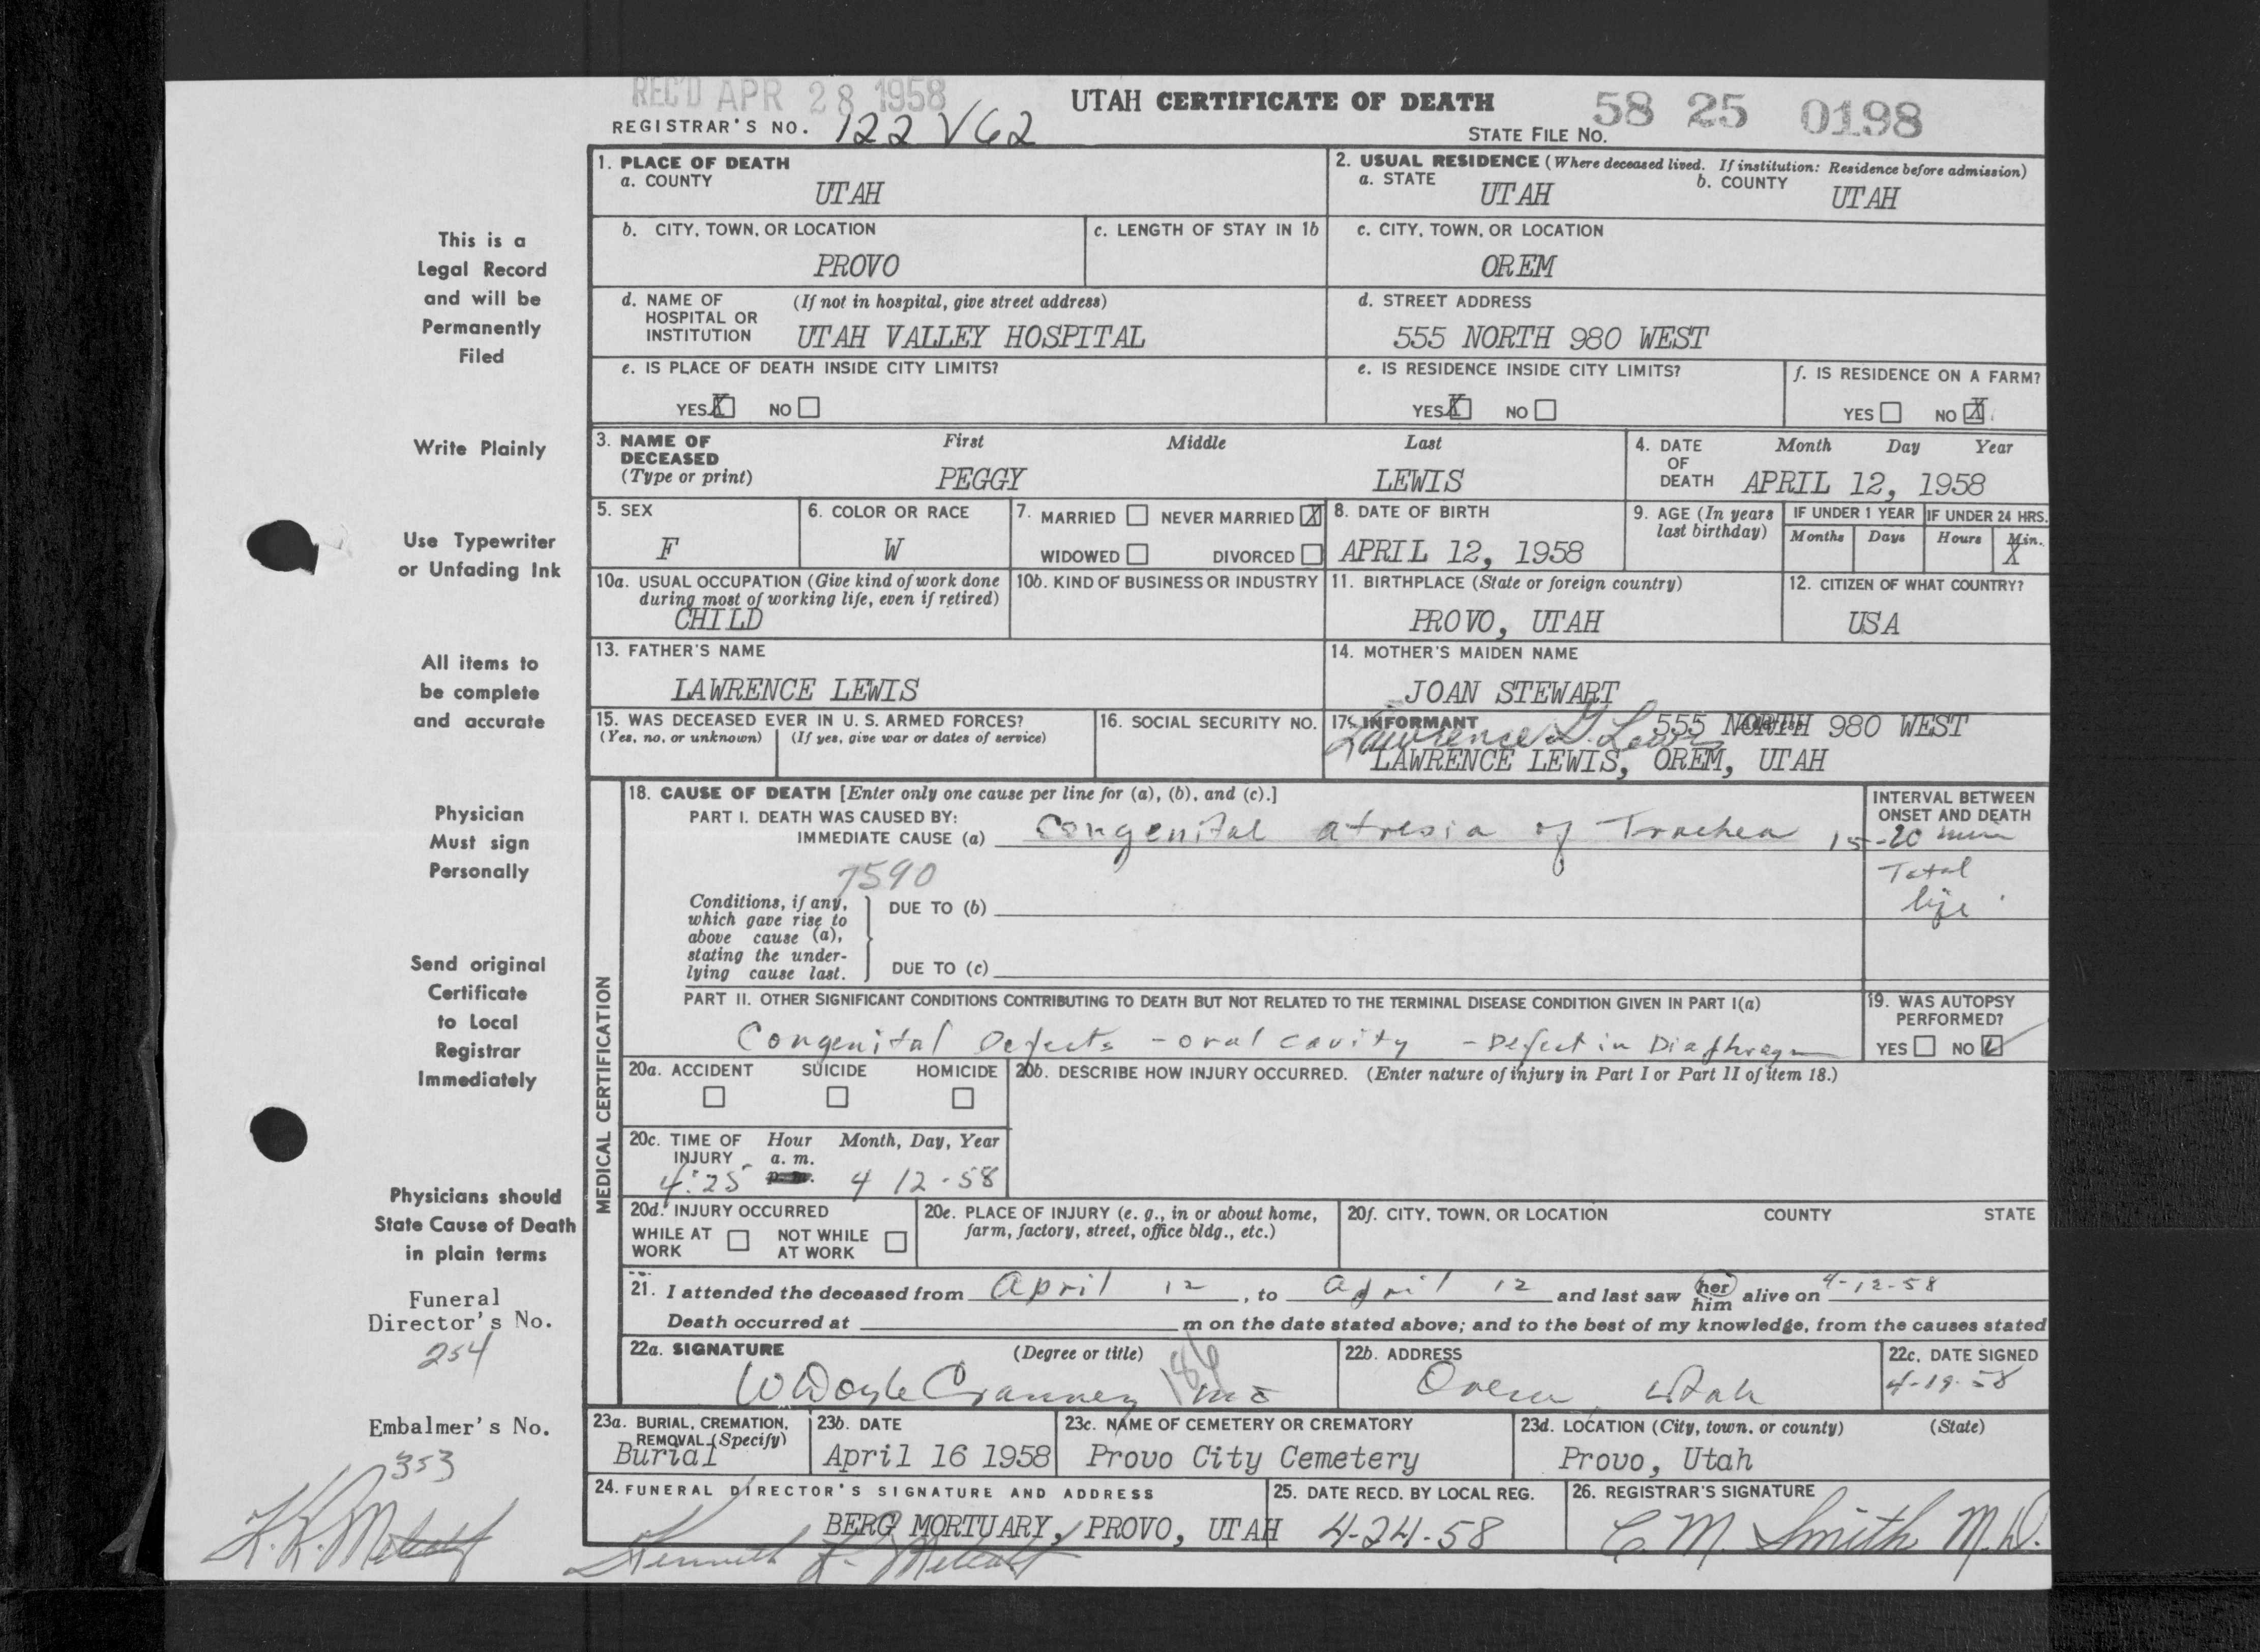 REC'D APR 28 1958
UTAH CERTIFICATE OF DEATH
58 25 0198
REGISTRAR'S NO. 122 V62
STATE FILE NO.
This is a
Legal Record
and will be
Permanently
Filed
Write Plainly
Use Typewriter
or Unfading Ink
All items to
be complete
and accurate
Physician
Must sign
Personally
Send original
Certificate
to Local
Registrar
Immediately
Physicians should
State Cause of Death
in plain terms
Funeral
Director's No.
254
Embalmer's No.
353
1. PLACE OF DEATH
a. COUNTY
UTAH
2. USUAL RESIDENCE (Where deceased lived. If institution: Residence before admission)
a. STATE
UTAH
b. COUNTY
UTAH
b. CITY, TOWN, OR LOCATION
PROVO
c. LENGTH OF STAY IN 1b
c. CITY, TOWN, OR LOCATION
OREM
d. NAME OF HOSPITAL OR INSTITUTION
(If not in hospital, give street address)
UTAH VALLEY HOSPITAL
d. STREET ADDRESS
555 NORTH 980 WEST
e. IS PLACE OF DEATH INSIDE CITY LIMITS?
YES X NO
e. IS RESIDENCE INSIDE CITY LIMITS?
YES X NO
f. IS RESIDENCE ON A FARM?
YES NO X
3. NAME OF DECEASED
(Type or print)
First Middle Last
PEGGY LEWIS
4. DATE OF DEATH
Month Day Year
APRIL 12, 1958
5. SEX
F
6. COLOR OR RACE
W
7. MARRIED NEVER MARRIED X
WIDOWED DIVORCED
8. DATE OF BIRTH
APRIL 12, 1958
9. AGE (In years last birthday)
IF UNDER 1 YEAR
Months Days
IF UNDER 24 HRS.
Hours Min.
X
10a. USUAL OCCUPATION (Give kind of work done
during most of working life, even if retired)
CHILD
10b. KIND OF BUSINESS OR INDUSTRY
11. BIRTHPLACE (State or foreign country)
PROVO, UTAH
12. CITIZEN OF WHAT COUNTRY?
USA
13. FATHER'S NAME
LAWRENCE LEWIS
14. MOTHER'S MAIDEN NAME
JOAN STEWART
15. WAS DECEASED EVER IN U. S. ARMED FORCES?
(Yes, no, or unknown) (If yes, give war or dates of service)
16. SOCIAL SECURITY NO.
17. INFORMANT Address
Lawrence G. Lewis 555 NORTH 980 WEST
LAWRENCE LEWIS, OREM, UTAH
MEDICAL CERTIFICATION
18. CAUSE OF DEATH [Enter only one cause per line for (a), (b), and (c).]
PART I. DEATH WAS CAUSED BY:
IMMEDIATE CAUSE (a) Congenital atresia of Trachea
INTERVAL BETWEEN
ONSET AND DEATH
15-20 min
Total
life
7590
Conditions, if any,
which gave rise to
above cause (a),
stating the under-
lying cause last.
DUE TO (b)
DUE TO (c)
PART II. OTHER SIGNIFICANT CONDITIONS CONTRIBUTING TO DEATH BUT NOT RELATED TO THE TERMINAL DISEASE CONDITION GIVEN IN PART I(a)
Congenital Defects - oral cavity - Defect in Diaphragm
19. WAS AUTOPSY PERFORMED?
YES NO
20a. ACCIDENT SUICIDE HOMICIDE
20b. DESCRIBE HOW INJURY OCCURRED. (Enter nature of injury in Part I or Part II of item 18.)
20c. TIME OF INJURY
Hour Month, Day, Year
a. m.
4:25 p. m. 4 12-58
20d. INJURY OCCURRED
WHILE AT WORK NOT WHILE AT WORK
20e. PLACE OF INJURY (e. g., in or about home,
farm, factory, street, office bldg., etc.)
20f. CITY, TOWN, OR LOCATION COUNTY STATE
21. I attended the deceased from April 12, to April 12 and last saw her him alive on 4-12-58
Death occurred at m on the date stated above; and to the best of my knowledge, from the causes stated
22a. SIGNATURE (Degree or title)
W Doyle Cranney MD
186
22b. ADDRESS
Orem Utah
22c. DATE SIGNED
4-19-58
23a. BURIAL, CREMATION,
REMOVAL (Specify)
Burial
23b. DATE
April 16 1958
23c. NAME OF CEMETERY OR CREMATORY
Provo City Cemetery
23d. LOCATION (City, town, or county) (State)
Provo, Utah
24. FUNERAL DIRECTOR'S SIGNATURE AND ADDRESS
BERG MORTUARY, PROVO, UTAH
25. DATE RECD. BY LOCAL REG.
4-24-58
26. REGISTRAR'S SIGNATURE
C. M. Smith M.D.
K. K. Metcalf
Kenneth K. Metcalf